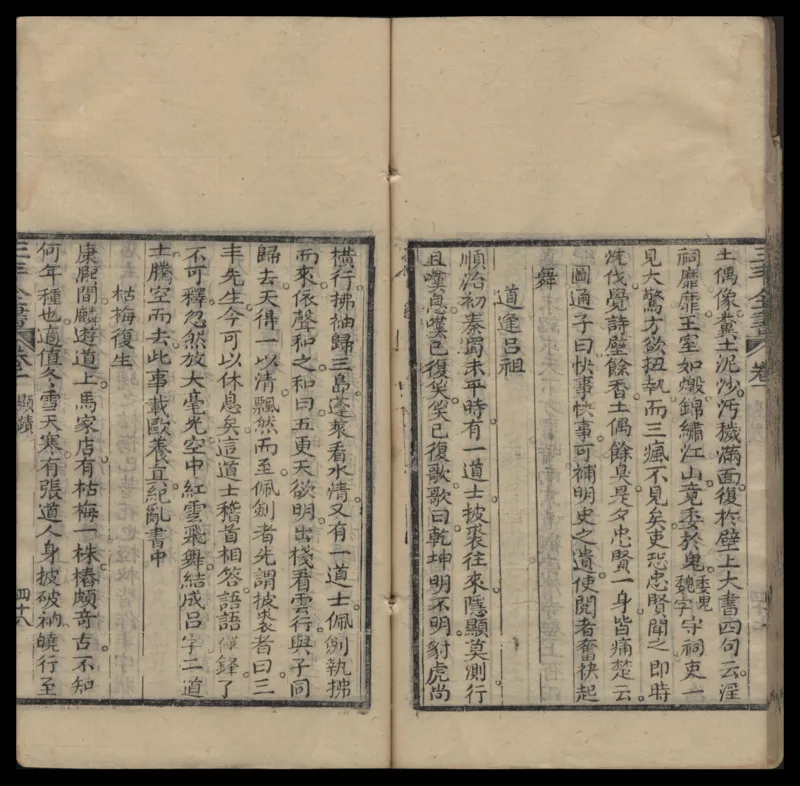 三丰全書
卷一
土偶像糞土泥沙汚穢滿面復於壁上大書四句云淫
祠靡靡王室如燬錦繡江山竟委於鬼委鬼魏字守祠吏一
見大驚方欲扭執而三瘋不見矣吏恐忠賢聞之即時
洗伐覺詩壁餘香土偶餘臭是夕忠賢一身皆痛楚云
圓通子曰快事快事可補明史之遺使閱者奮袂起
舞
道逢呂祖
順治初秦蜀未平時有一道士披裘往來隱顯莫測行
且嘆息嘆已復笑笑已復歌歌曰乾坤明不明豺虎尚
橫行拂袖歸三島蓬萊看水清又有一道士佩劍執拂
而來依聲和之和曰五更天欲明出棧看雲行與子同
歸去天得一以清飄然而至佩劍者先謂披裘者曰三
丰先生今可以休息矣這道士稽首相答語語僊鋒了
不可釋忽然放大毫光空中紅雲飛舞結成呂字二道
士騰空而去此事載歐養直紀亂書中
枯梅復生
康熙間麟遊道上馬家店有枯梅一株樁頗奇古不知
何年種也適值冬雪天寒有張道人身披破衲曉行至
三丰全書
卷一
顯蹟
四十八